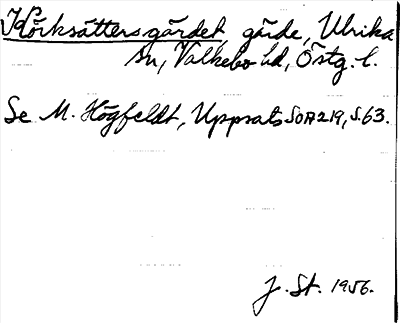 Körksättersgärdet, gärde, Ulrika
sn, Valkebo hd, Östg. l.
Se M. Högfeldt, Uppsats SOA 219, s. 63.
J. St. 1956.